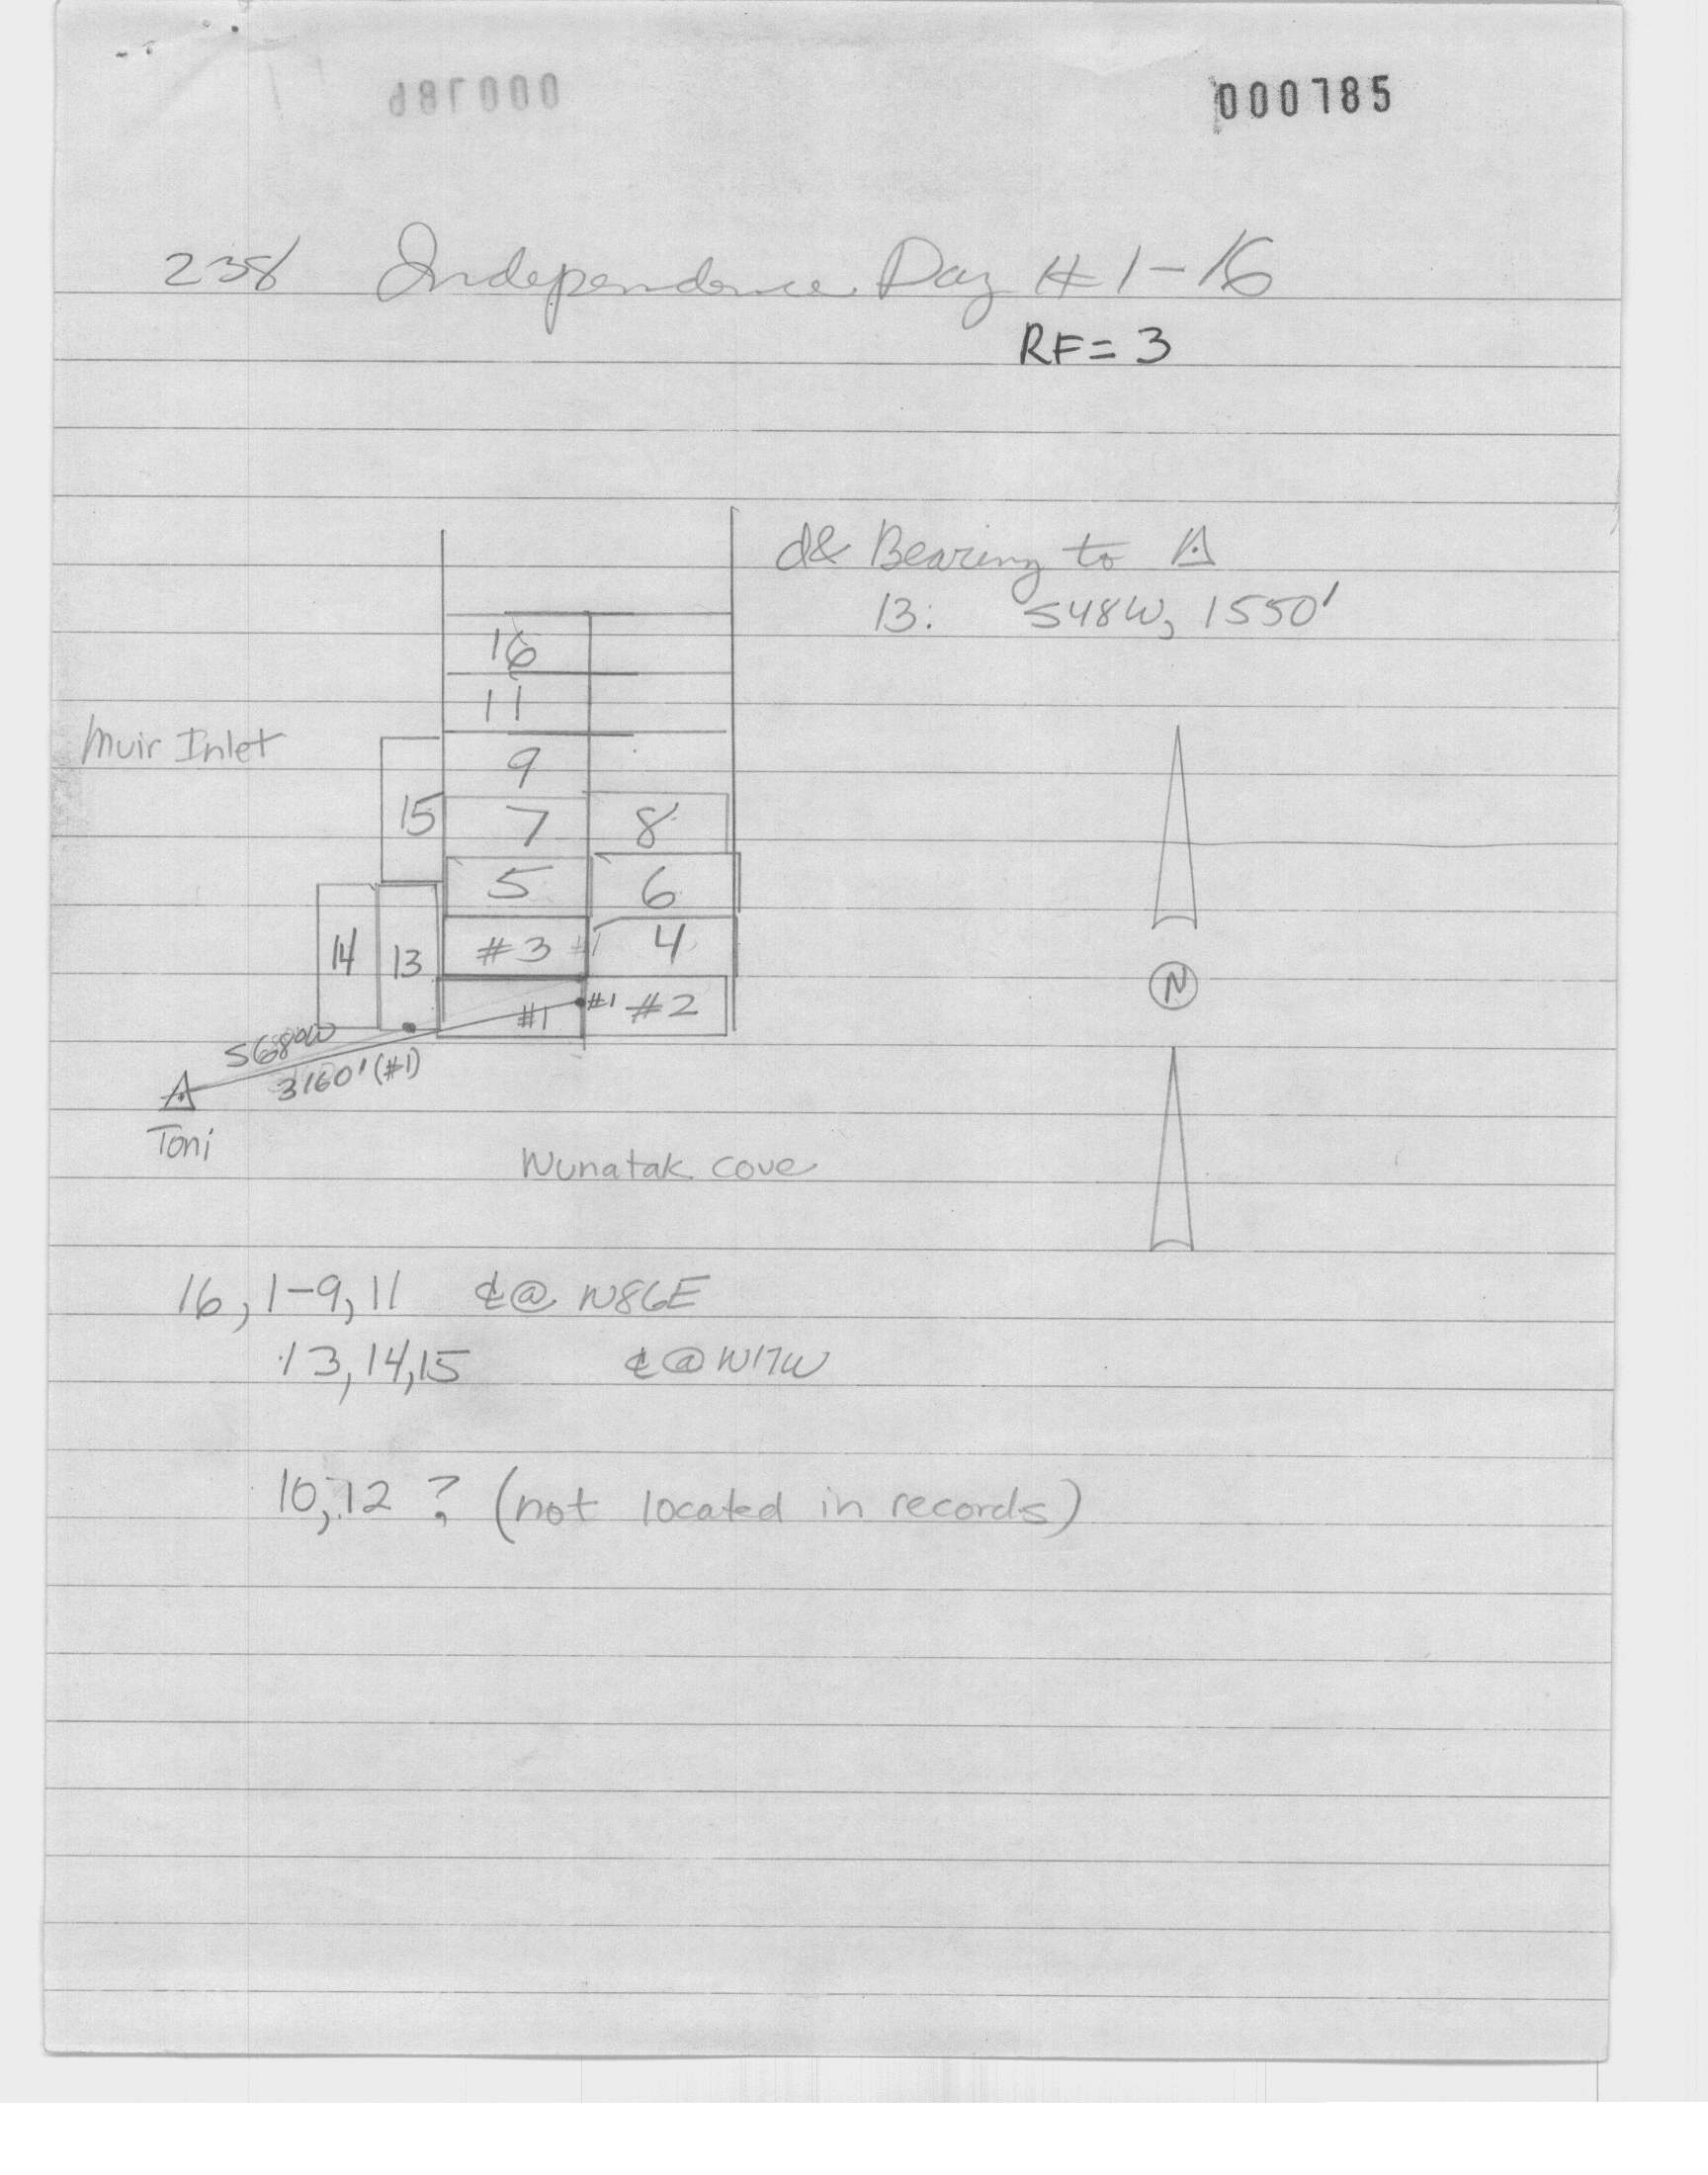 000785
238 Independence Day #1-16
RF = 3
d& Bearing to △
13: S48W, 1550'
16
11
Muir Inlet
9
15 7 8
5 6
14 13 #3 #1 4
#1 #1 #2
S68°W
3160' (#1)
Toni
N
Wunatak cove
16, 1-9, 11 ℄ @ N86E
13, 14, 15 ℄ @ N17W
10, 12 ? (not located in records)